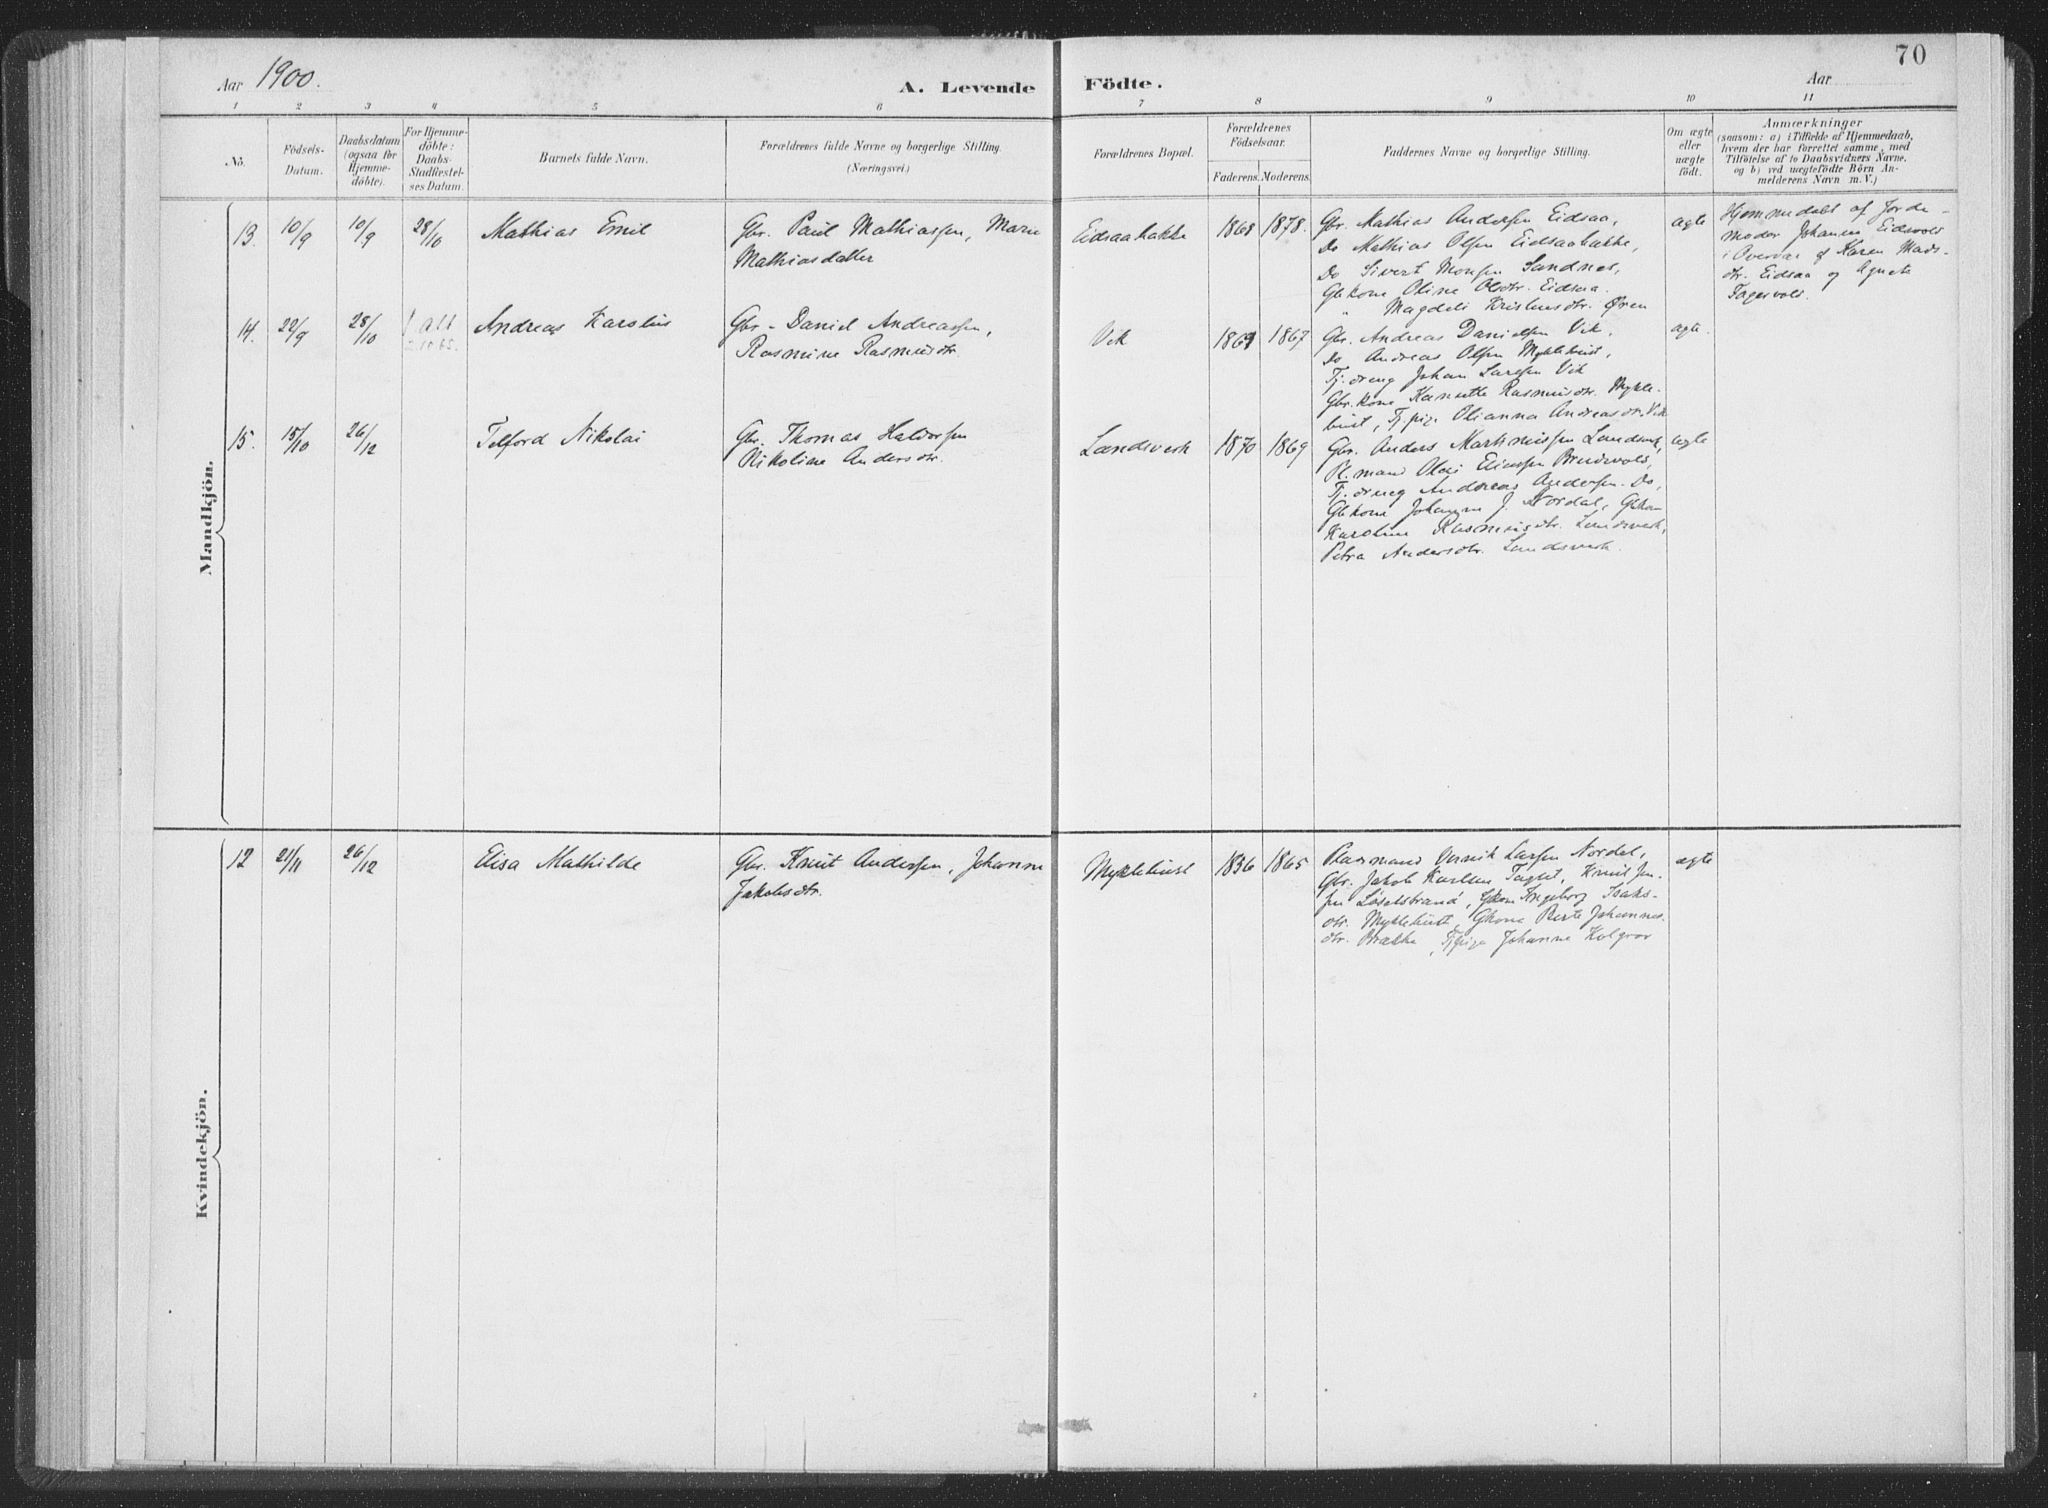 70
Aar 1900.
A. Levende Födte.
Aar
1 2 3 4 5 6 7 8 9 10 11
No.
Födsels-
Datum.
Daabsdatum
(ogsaa for
Hjemme-
döbte).
For Hjemme-
döbte:
Daabs-
Stadfæstel-
ses Datum.
Barnets fulde Navn.
Forældrenes fulde Navne og borgerlige Stilling.
(Næringsvei.)
Forældrenes Bopæl.
Forældrenes
Födselsaar.
Faderens. Moderens.
Faddernes Navne og borgerlige Stilling.
Om ægte
eller
uægte
födt.
Anmærkninger
(saasom: a) i Tilfælde af Hjemmedaab,
hvem der har forrettet samme, med
Tilföielse af to Daabsvidners Navne.
og b) ved uægtefödte Börn An-
melderens Navn m. V.)
Mandkjön.
13. 10/9 10/9 28/10 Mathias Emil
Gbr. Paul Mathiassen, Maren
Mathiasdatter
Eidsaabakke 1868 1878.
Gbr. Mathias Andersen Eidsaa,
Do Mathias Olsen Eidsaabakke,
Do Sivert Monsen Sandnes,
Gbkone Oline Olsdtr. Eidsaa.
" Magdeli Kristensdtr. Øren
ægte
Hjemmedøbt af Jorde-
moder Johanne Eidsvold
i Overvær af Karen Mads-
dtr. Eidsaa og Agnete
Fagervold.
14. 22/9 28/10
Andreas Karolus
Gbr. Daniel Andreassen,
Rasmine Rasmusdtr.
Vik 1869 1867
Gbr. Andreas Danielsen Vik,
Do Andreas Olsen Myklebust,
Tj.dreng Johan Larsen Vik
Gbr.kone Kanutte Rasmusdtr. Mykle-
bust, Tj.pige Olianna Andreasdtr. Vik
ægte.
15. 15/10 26/12 Telford Nikolai
Gbr. Thomas Haldorsen
Nikoline Andersdtr.
Landsverk 1870 1869
Gbr. Anders Martinussen Landsverk,
Pl.mand Olai Eliassen Breidvold,
Tj.dreng Andreas Andersen Do,
Gbkone Johanne J. Nordal, Gbkone
Karoline Rasmusdtr. Landsverk,
Petra Andersdtr. Landsverk.
ægte
Kvindekjön.
12 21/11 26/12 Elisa Mathilde
Gbr. Knut Andersen, Johanne
Jakobsdtr.
Myklebust 1856 1865
Plasmand Larsen Nordal,
Gbr. Jakob Karlsen Knut Jen-
sen Løsetstrand, Gkone Ingeborg Isaks-
dtr. Myklebust, Gkone Berte Johannes-
dtr. Brække, Tjpige Johanne Kolgrov
ægte